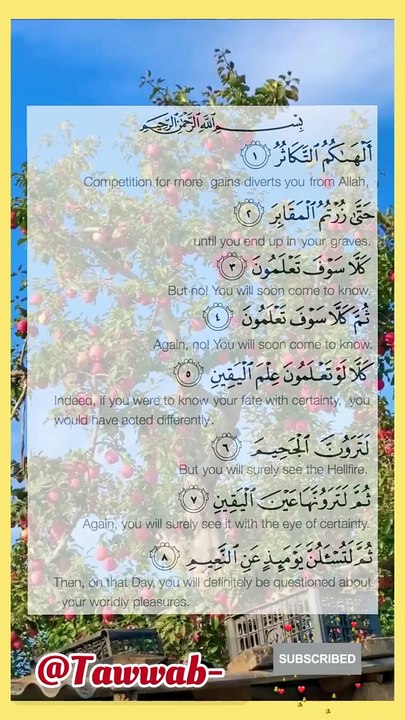 بِسْمِ اللَّهِ الرَّحْمَٰنِ الرَّحِيمِ
أَلْهَىٰكُمُ التَّكَاثُرُ ١
Competition for more gains diverts you from Allah,
حَتَّىٰ زُرْتُمُ الْمَقَابِرَ ٢
until you end up in your graves.
كَلَّا سَوْفَ تَعْلَمُونَ ٣
But no! You will soon come to know.
ثُمَّ كَلَّا سَوْفَ تَعْلَمُونَ ٤
Again, no! You will soon come to know.
كَلَّا لَوْ تَعْلَمُونَ عِلْمَ الْيَقِينِ ٥
Indeed, if you were to know your fate with certainty, you
would have acted differently.
لَتَرَوُنَّ الْجَحِيمَ ٦
But you will surely see the Hellfire.
ثُمَّ لَتَرَوُنَّهَا عَيْنَ الْيَقِينِ ٧
Again, you will surely see it with the eye of certainty.
ثُمَّ لَتُسْـَٔلُنَّ يَوْمَئِذٍ عَنِ النَّعِيمِ ٨
Then, on that Day, you will definitely be questioned about
your worldly pleasures.
@Tawwab-
SUBSCRIBED